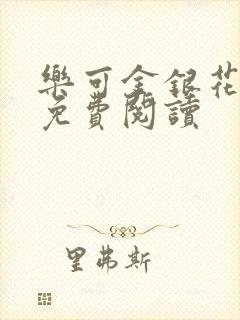 樂可金銀花
免費閱讀
里弗斯